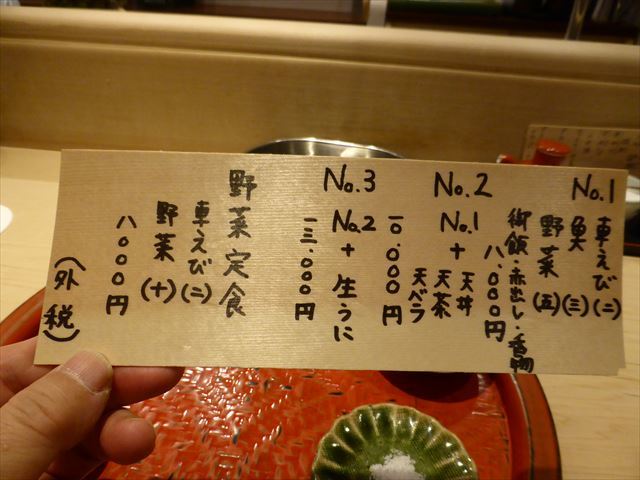 No.1
車えび(二)
魚(三)
野菜(五)
御飯・赤出し・香物
八.〇〇〇円
No.2
No.1
+
天丼
天茶
天バラ
一〇.〇〇〇円
No.3
No.2
+
生うに
一三.〇〇〇円
野菜定食
車えび(二)
野菜(十)
八〇〇〇円
(外税)